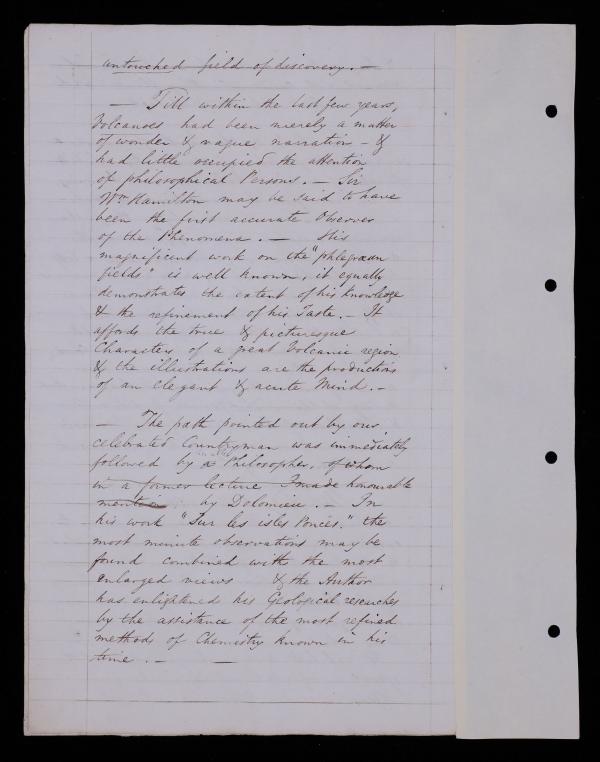 untouched field of discovery. —
— Till within the last few years,
Volcanoes had been merely a matter
of wonder & vague narration — &
had little occupied the attention
of philosophical Persons. — Sir
Wm Hamilton may be said to have
been the first accurate Observer
of the Phenomena. — His
magnificent work on the "phlegræan
fields" is well known, it equally
demonstrates the extent of his knowledge
& the refinement of his Taste. — It
affords the true & picturesque
Characters of a great Volcanic region
& the illustrations are the productions
of an elegant & acute Mind. —
— The path pointed out by our
celebrated Countryman was immediately
followed by a Philosopher, of whom
in a former lecture I made honourable
mention by Dolomieu. — In
his work "Sur les isles Ponces," the
most minute observations may be
found combined with the most
enlarged views & the Author
has enlightened his Geological researches
by the assistance of the most refined
methods of Chemistry known in his
time. — —